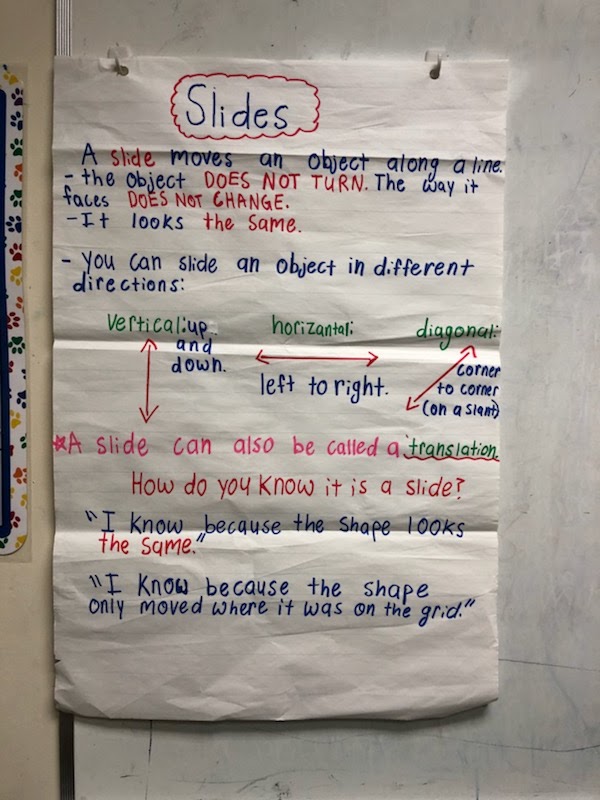 Slides
A slide moves an object along a line.
- the object DOES NOT TURN. The way it
faces DOES NOT CHANGE.
- It looks the same.
- You can slide an object in different
directions:
vertical: up and down.
horizantal: left to right.
diagonal: corner to corner (on a slant)
*A slide can also be called a translation
How do you know it is a slide?
"I know because the shape looks
the same."
"I know because the shape
only moved where it was on the grid."